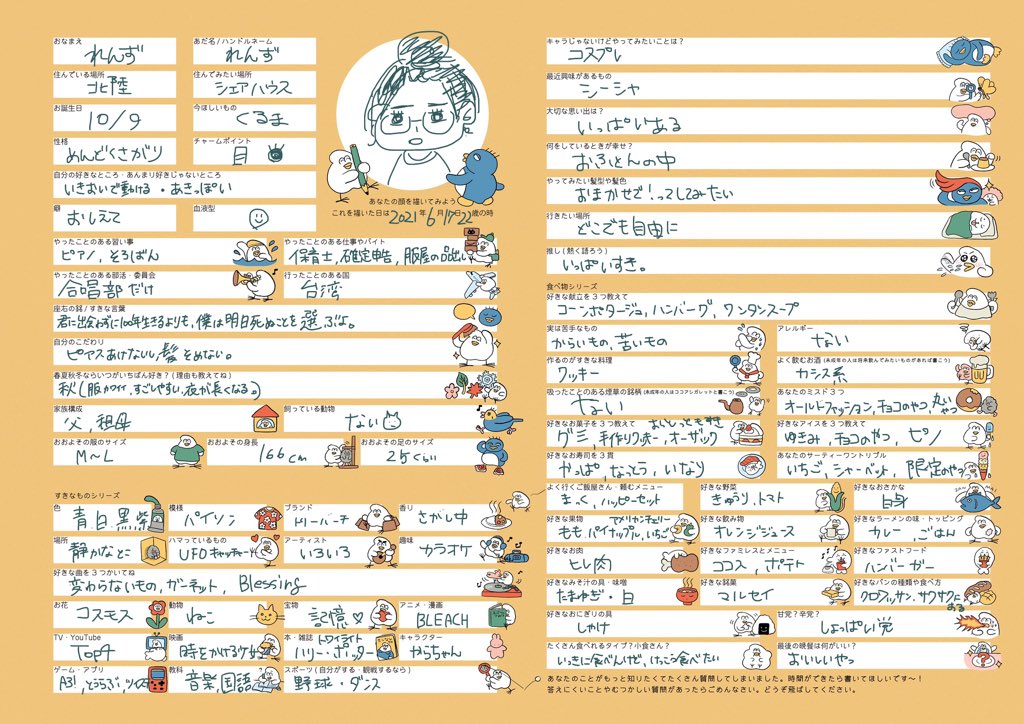 おなまえ
れんず
あだ名/ハンドルネーム
れんず
住んでいる場所
北陸
住んでみたい場所
シェアハウス
お誕生日
10/9
今ほしいもの
くるま
性格
めんどくさがり
チャームポイント
目
自分の好きなところ・あんまり好きじゃないところ
いきおいで動ける・あきっぽい
癖
おしえて
血液型
あなたの顔を描いてみよう
これを描いた日は2021年6月17日22歳の時
やったことのある習い事
ピアノ,そろばん
やったことのある仕事やバイト
保育士,確定申告,服屋の品出し
やったことのある部活・委員会
合唱部だけ
行ったことのある国
台湾
座右の銘/すきな言葉
君に出会わずに100年生きるよりも、僕は明日死ぬことを選ぶよ。
自分のこだわり
ピアスあけないし,髪そめない。
春夏秋冬ならいつがいちばん好き?(理由も教えてね)
秋(服カワイイ,すごしやすい,夜が長くなる。)
家族構成
父,祖母
飼っている動物
ない
おおよその服のサイズ
M〜L
おおよその身長
166cm
おおよその足のサイズ
25くらい
すきなものシリーズ
色
青,白,黒,紫
模様
パイソン
ブランド
トリーバーチ
香り
さがし中
場所
静かなとこ
ハマっているもの
UFOキャッチャー
アーティスト
いろいろ
趣味
カラオケ
好きな曲を3つかいてね
変わらないもの,ガーネット,Blessing
お花
コスモス
動物
ねこ
宝物
記憶♡
アニメ・漫画
BLEACH
TV・YouTube
Top4
映画
時をかけるケ
本・雑誌
トワイライト
ハリー・ポッター
キャラクター
からちゃん
ゲーム・アプリ
A3!,とうらぶ,ツイステ
教科
音楽,国語
スポーツ(自分がする・観戦するなら)
野球・ダンス
キャラじゃないけどやってみたいことは?
コスプレ
最近興味があるもの
シーシャ
大切な思い出は?
いっぱいある
何をしているときが幸せ?
おふとんの中
やってみたい髪型や髪色
おまかせで!ってしてみたい
行きたい場所
どこでも自由に
推し(熱く語ろう)
いっぱいすき。
食べ物シリーズ
好きな献立を3つ教えて
コーンポタージュ,ハンバーグ,ワンタンスープ
実は苦手なもの
からいもの,苦いもの
アレルギー
ない
作るのがすきな料理
クッキー
よく飲むお酒(未成年の人は将来飲んでみたいものがあれば書こう)
カシス系
吸ったことのある煙草の銘柄(未成年の人はココアシガレットと書こう)
ない
あなたのミスド3つ
オールドファッション,チョコのやつ,丸いやつ
好きなお菓子を3つ教えて
おいとっともすき
グミ,手作りクッキー,オーザック
好きなアイスを3つ教えて
ゆきみ,チョコのやつ,ピノ
好きなお寿司を3貫
かっぱ,なっとう,いなり
あなたのサーティーワントリプル
いちご,シャーベット,限定のやつ
よく行くご飯屋さん・頼むメニュー
まっく,ハッピーセット
好きな野菜
きゅうり,トマト
好きなおさかな
白身
好きな果物
アメリカンチェリー
もも,パイナップル,いちご
好きな飲み物
オレンジジュース
好きなラーメンの味・トッピング
カレー,ごはん
好きなお肉
ヒレ肉
好きなファミレスとメニュー
ココス,ポテト
好きなファストフード
ハンバーガー
好きなみそ汁の具・味噌
たまねぎ・白
好きな銘菓
マルセイ
好きなパンの種類や食べ方
クロワッサン,サクサクにする
好きなおにぎりの具
しゃけ
甘党?辛党?
しょっぱい党
たくさん食べれるタイプ?小食さん?
いっきに食べんけど,けっこう食べたい
最後の晩餐は何がいい?
おいしいやつ
あなたのことがもっと知りたくてたくさん質問してしまいました。時間ができたら書いてほしいです〜!
答えにくいことやむつかしい質問があったらごめんなさい。どうぞ飛ばしてください。